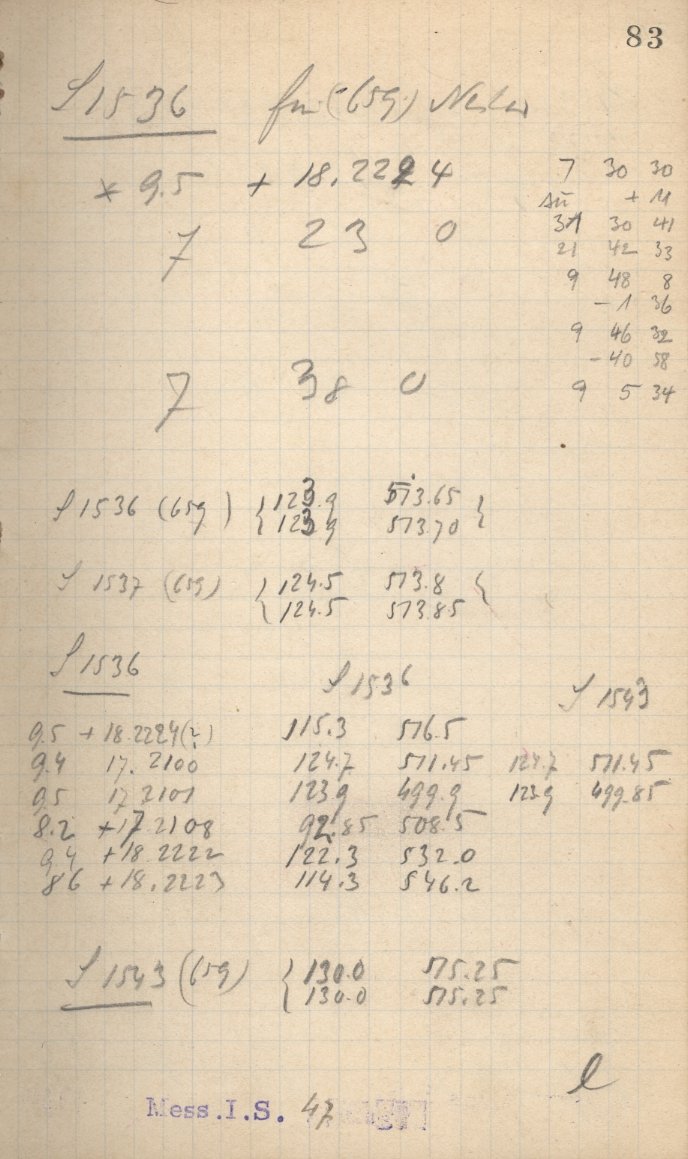 83
S 1536 für (659) Nestor
* 9.5 + 18.2224
7 23 0
7 38 0
7 30 30
+ 11
31 30 41
21 42 33
9 48 8
- 1 36
9 46 32
- 40 58
9 5 34
S 1536 (659) { 123.9 513.65 }
{ 123.9 513.70 }
S 1537 (659) { 124.5 513.8 }
{ 124.5 513.85 }
S 1536 S 1536 S 1543
9.5 + 18.2224 (?) 115.3 516.5
9.4 17. 2100 124.7 511.45 124.7 511.45
9.5 17 2101 123.9 499.9 123.9 499.85
8.2 + 17 2108 92.85 508.5
9.4 + 18 2222 122.3 532.0
8.6 + 18. 2223 114.3 546.2
S 1543 (659) { 130.0 515.25
{ 130.0 515.25
l
Mess.I.S. 47